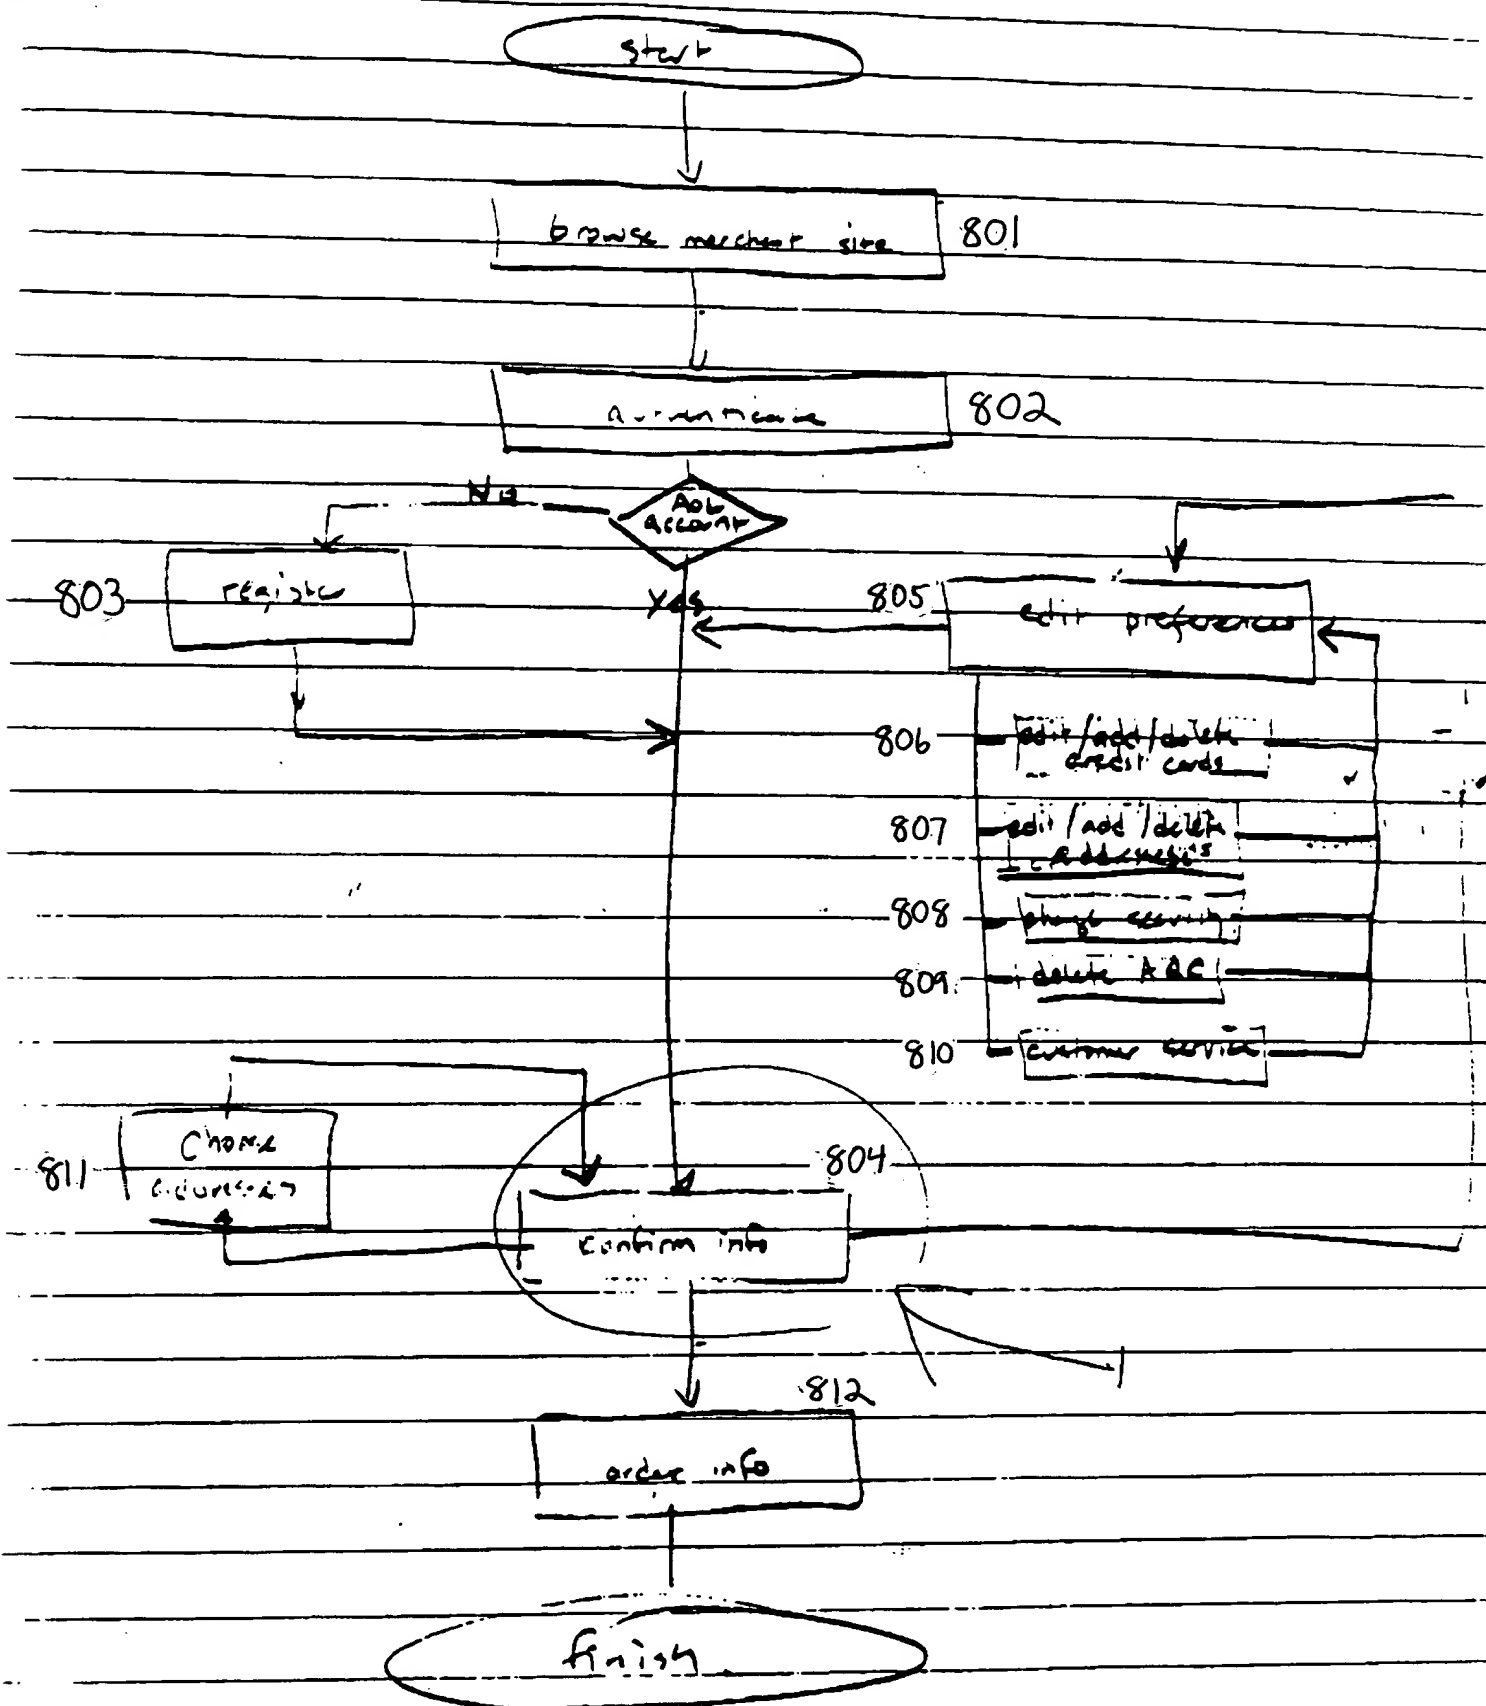 start
browse merchant site
801
authenticate
802
No
AOL
account
803
register
Yes
805
edit preferences
806
edit/add/delete
credit cards
807
edit/add/delete
808
change security
809
delete AQC
810
customer service
811
804
confirm info
812
order info
finish